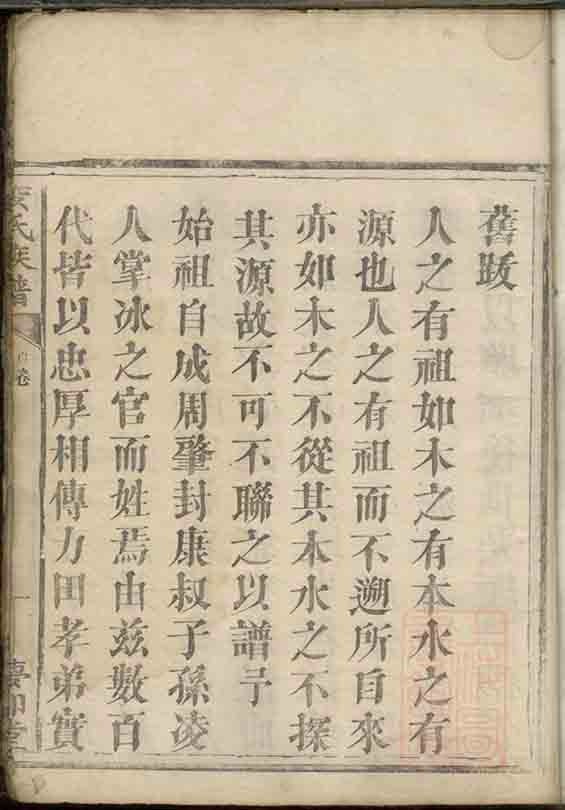 舊跋
人之有祖如木之有本水之有
源也人之有祖而不遡所自來
亦如木之不從其本水之不探
其源故不可不聯之以譜予
始祖自成周肇封康叔子孫凌
人掌冰之官而姓焉由茲數百
代皆以忠厚相傳力田孝弟實
氏族譜
卷
一